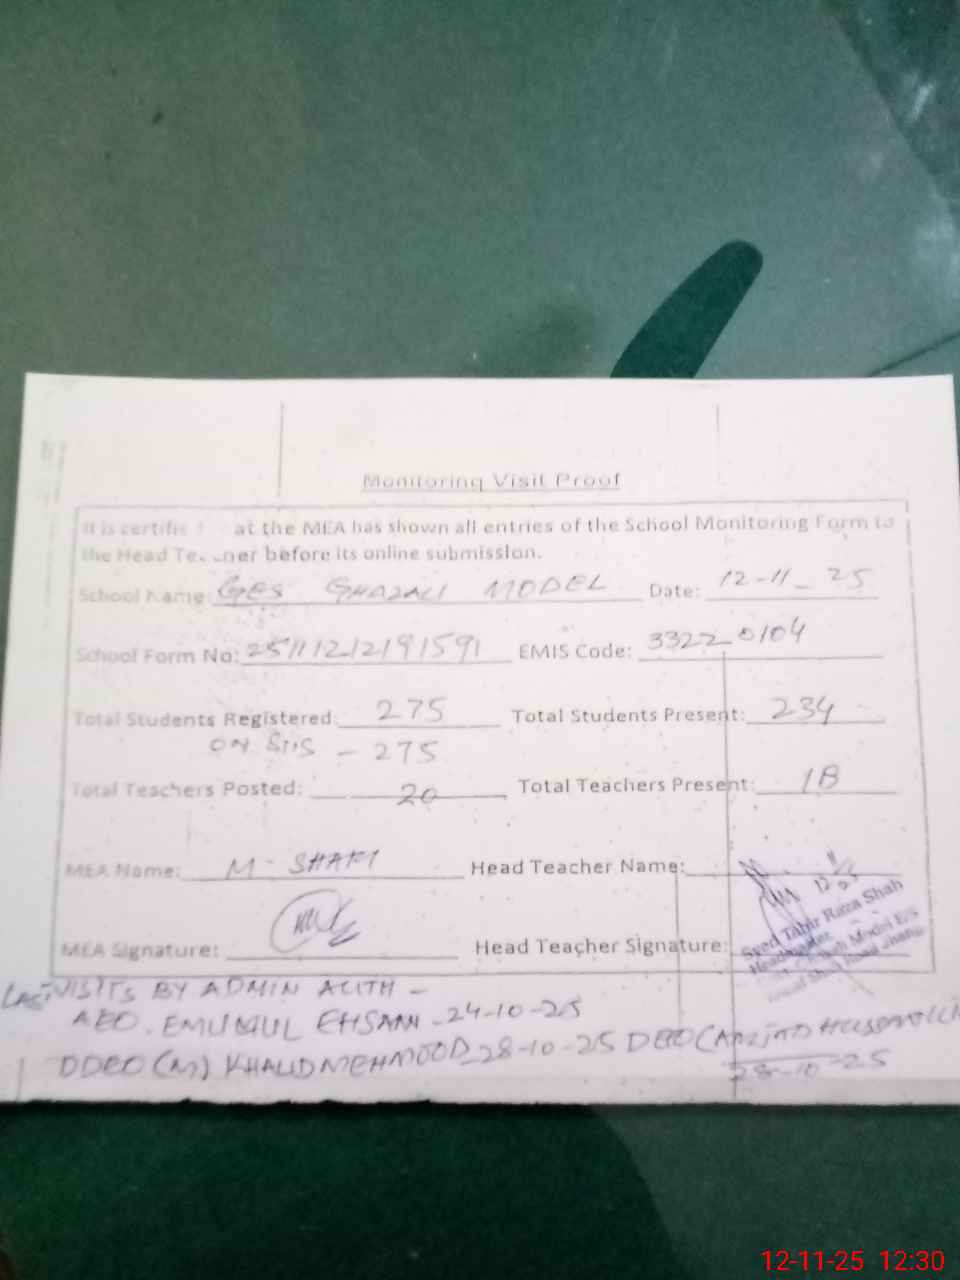 Monitoring Visit Proof
It is certifie at the MEA has shown all entries of the School Monitoring Form to
the Head Te ner before its online submission.
School Name: GES GHAZALI MODEL Date: 12-11-25
School Form No: EMIS Code: 33220104
Total Students Registered: 275 Total Students Present: 234
ON SIS - 275
Total Teachers Posted: 20 Total Teachers Present: 18
MEA Name: M- SHAFI Head Teacher Name:
12/11/25
Syed Tahir Raza Shah
Headmaster
Model E/S
MEA Signature: Head Teacher Signature:
LAST VISITS BY ADMIN
AEO. EHSAAN -24-10-25
DDEO (M) KHALID MEHMOOD 28-10-25 DEO (
28-10-25
12-11-25 12:30